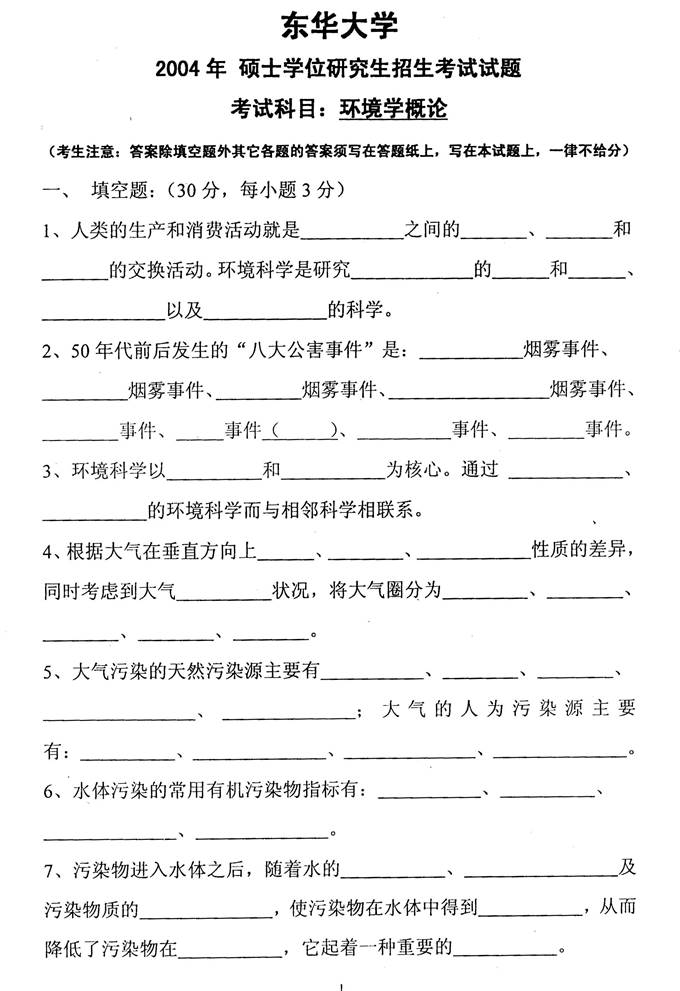 东华大学
2004年 硕士学位研究生招生考试试题
考试科目：环境学概论
（考生注意：答案除填空题外其它各题的答案须写在答题纸上，写在本试题上，一律不给分）
一、 填空题：（30分，每小题3分）
1、人类的生产和消费活动就是___________之间的_______、_______和
_______的交换活动。环境科学是研究_____________的______和______、
_____________以及_____________的科学。
2、50年代前后发生的“八大公害事件”是：___________烟雾事件、
_________烟雾事件、_________烟雾事件、_________________烟雾事件、
________事件、_____事件（_____）、__________事件、________事件。
3、环境科学以__________和___________为核心。通过 ____________、
___________的环境科学而与相邻科学相联系。
4、根据大气在垂直方向上______、________、____________性质的差异，
同时考虑到大气__________状况，将大气圈分为_________、________、
________、________、________。
5、大气污染的天然污染源主要有___________、_______、________、
________________、______________；大气的人为污染源主要
有：__________、______________、_______________、______________。
6、水体污染的常用有机污染物指标有：___________、__________、
______________、______________。
7、污染物进入水体之后，随着水的___________、________________及
污染物质的______________，使污染物在水体中得到___________，从而
降低了污染物在___________，它起着一种重要的___________。
1